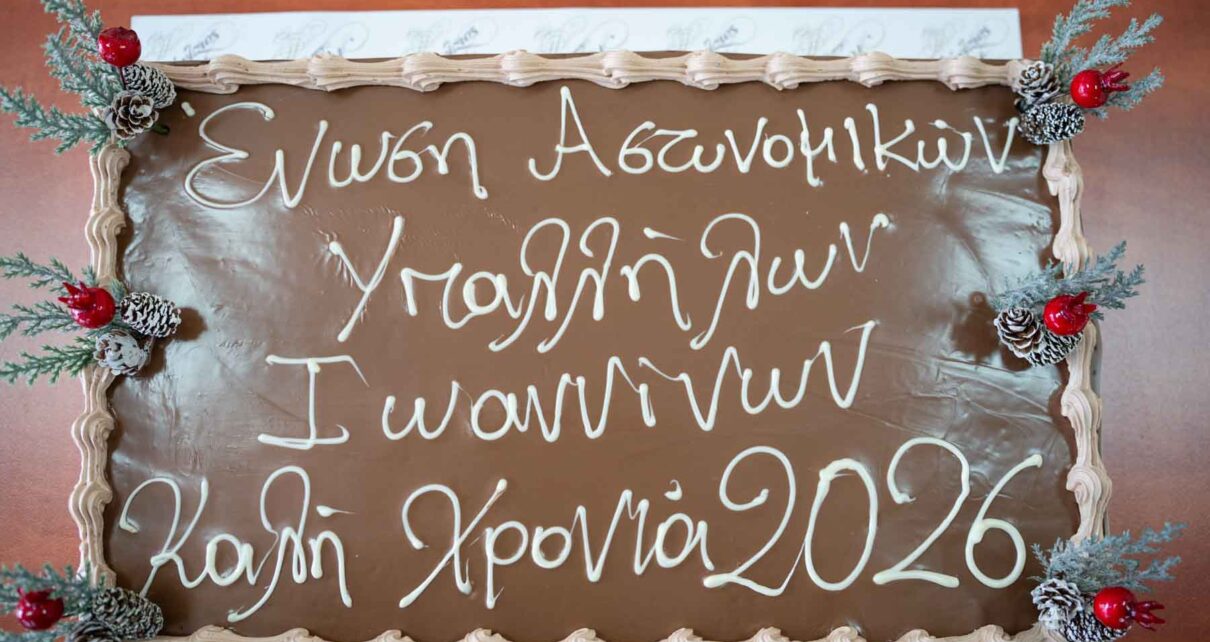 Ένωση Αστυνομικών
Υπαλλήλων
Ιωαννίνων
Καλή Χρονιά 2026